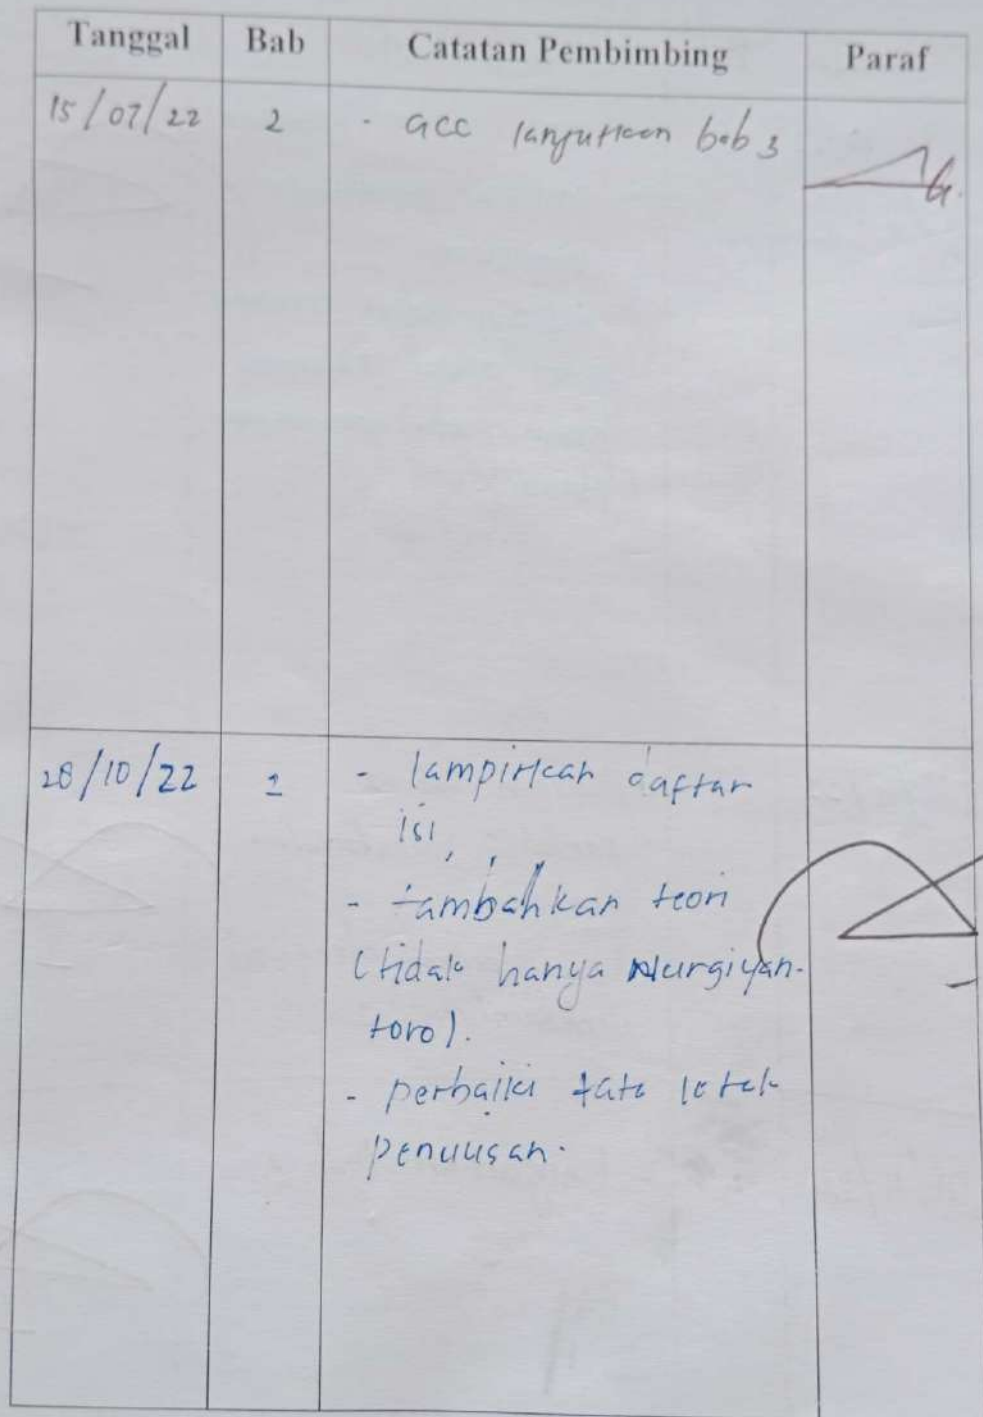 Tanggal Bab Catatan Pembimbing Paraf
15/07/22 2 - acc lanjutkan bab 3
28/10/22 2 - lampirkan daftar
isi,
- tambahkan teori
(tidak hanya Nurgiyan-
toro).
- perbaiki tata letak
penulisan.